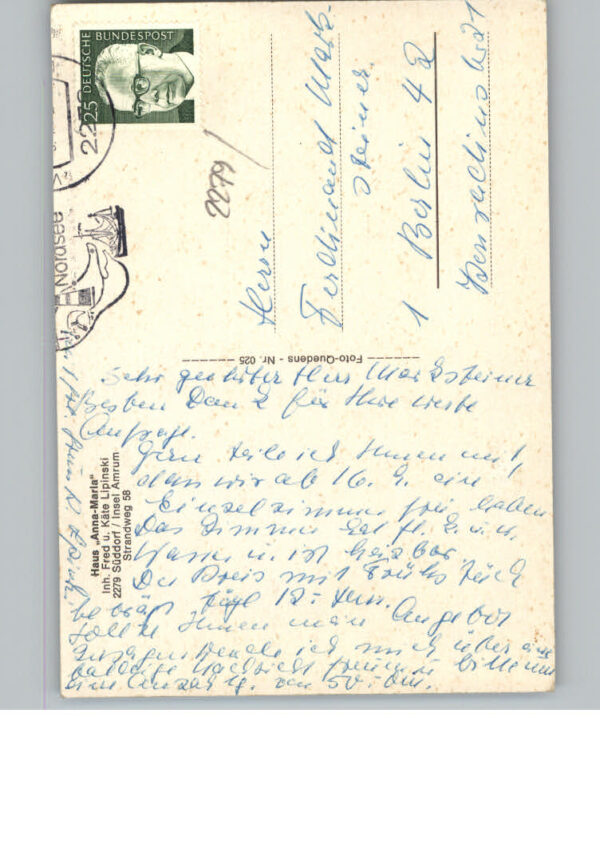 DEUTSCHE BUNDESPOST
25
2279
Nordsee
2279
Herrn
Ferdinand Mark-
steiner
1 Berlin 42
Foto-Quedens - Nr. 025
Haus „Anna-Maria"
Inh. Fred u. Käte Lipinski
2279 Süddorf / Insel Amrum
Strandweg 58
Sehr geehrter Herr Marksteiner
Besten Dank für Ihre werte
Anfrage.
Gern teile ich Ihnen mit,
dass wir ab 16. 9. ein
Einzelzimmer frei haben
Das Zimmer hat fl. k. u. w.
Wasser u. ist heizbar.
Der Preis mit Frühstück
beträgt tägl 12,- dm.
Sollte Ihnen mein Angebot
zusagen würde ich mich über eine
baldige Nachricht freuen u. bitte um
eine Anzahlg. von 50,- dm.